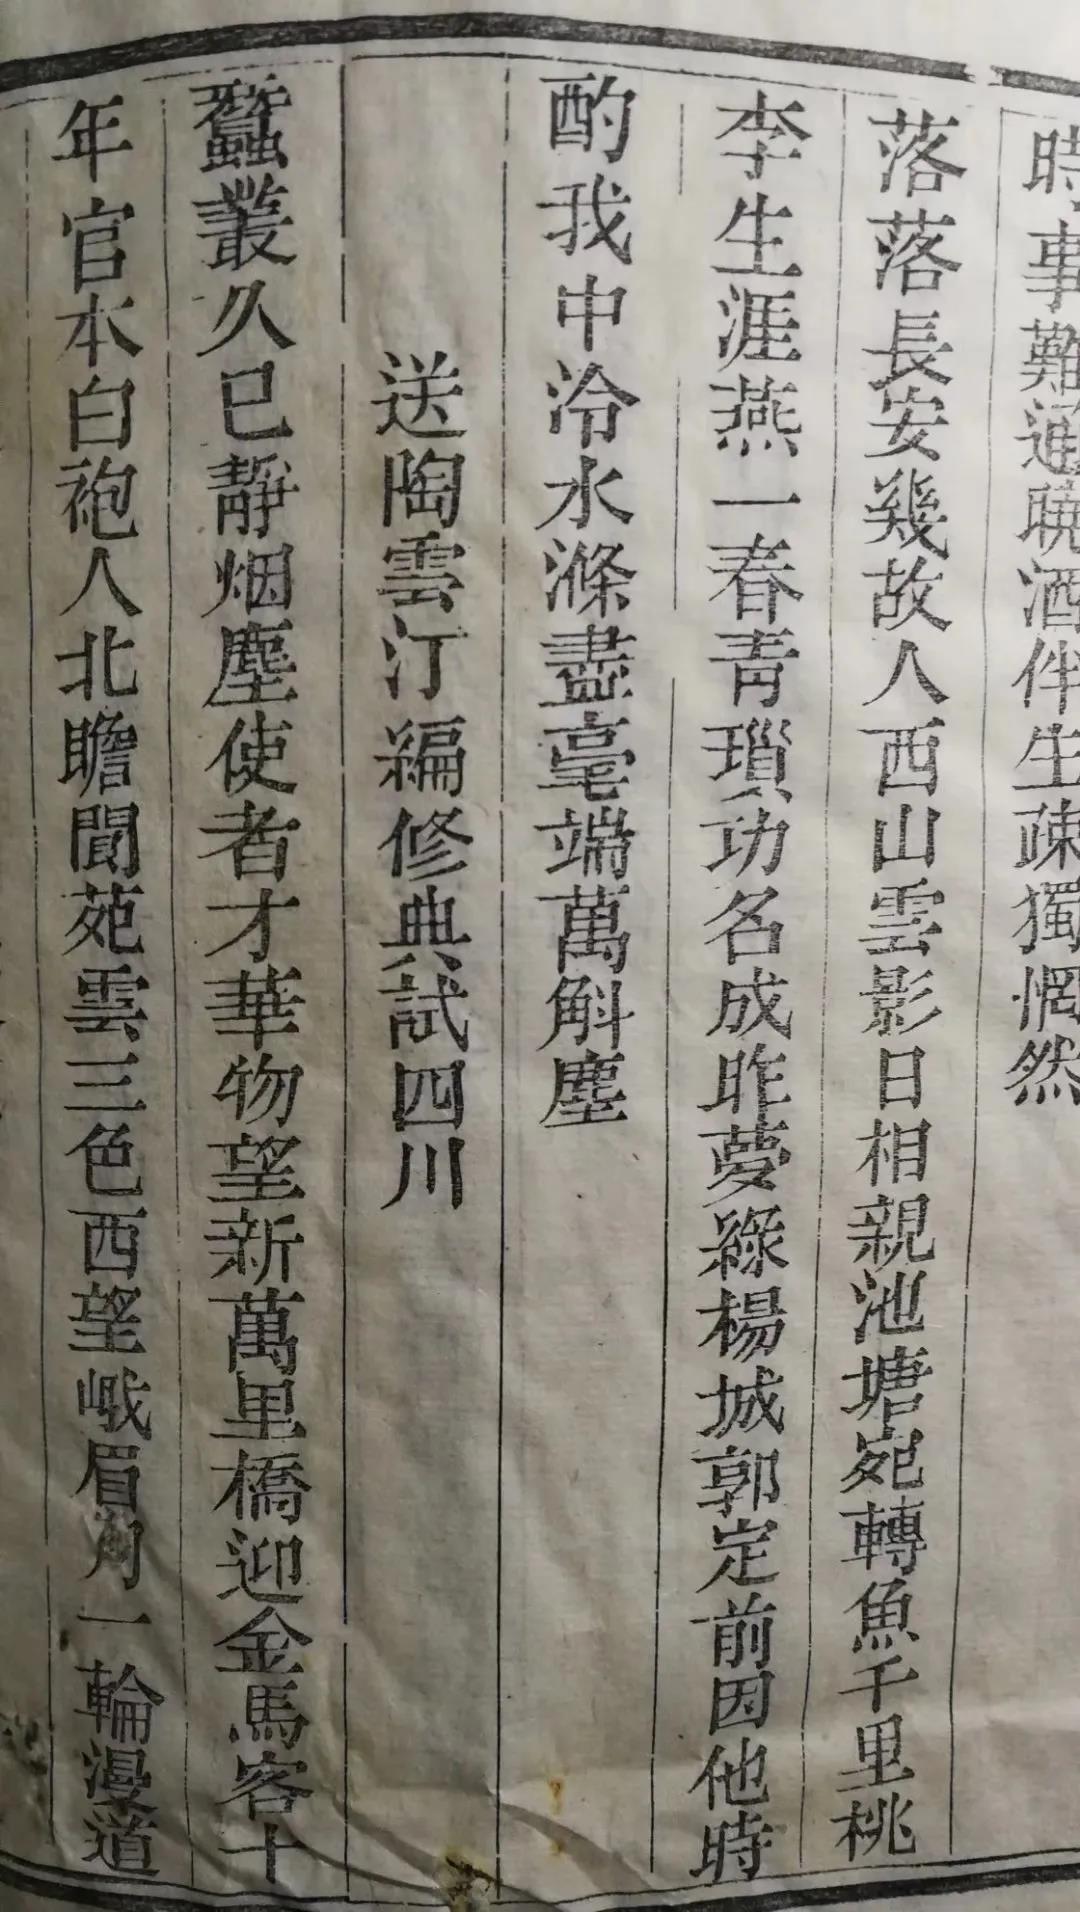 時事難通曉酒伴生疎獨惘然
落落長安幾故人西山雲影日相親池塘宛轉魚千里桃
李生涯燕一春青瑣功名成昨夢綠楊城郭定前因他時
酌我中泠水滌盡毫端萬斛塵
送陶雲汀編修典試四川
蠶叢久已靜烟塵使者才華物望新萬里橋迎金馬客十
年官本白袍人北瞻閬苑雲三色西望峨眉月一輪漫道